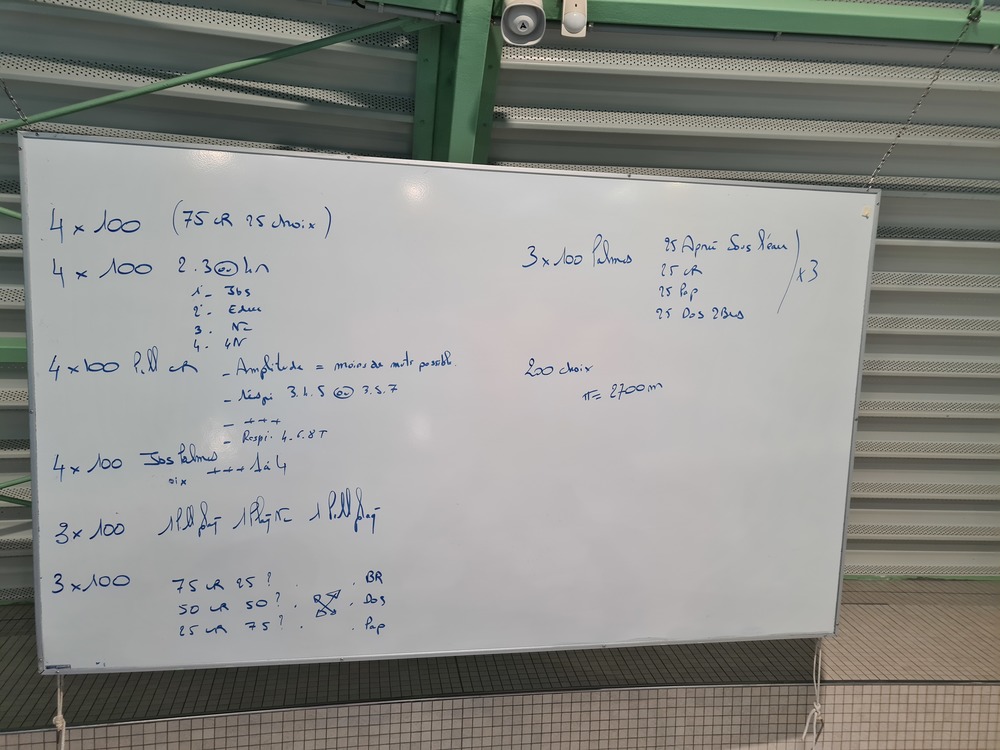 4 x 100 (75 cR 25 choix)
4 x 100 2.3 ou 4n
1 - Jbs
2 - Educ
3. NC
4. 4N
4 x 100 Pull cR - Amplitude = moins de mvts possible.
- Respi 3.4.5 ou 3.5.7
- +++
- Respi. 4.6.8 T
4 x 100 Jbs Palmes +++ 1 à 4
3 x 100 1 Pull plaq 1 Plaq NC 1 Pull plaq
3 x 100 75 cR 25 ? . . BR
50 cR 50 ? . . Dos
25 cR 75 ? . . Pap
3 x 100 Palmes 25 Apnée Sous l'eau
25 cR
25 Pap
25 Dos 2Bras
x3
200 choix
π = 2700 m